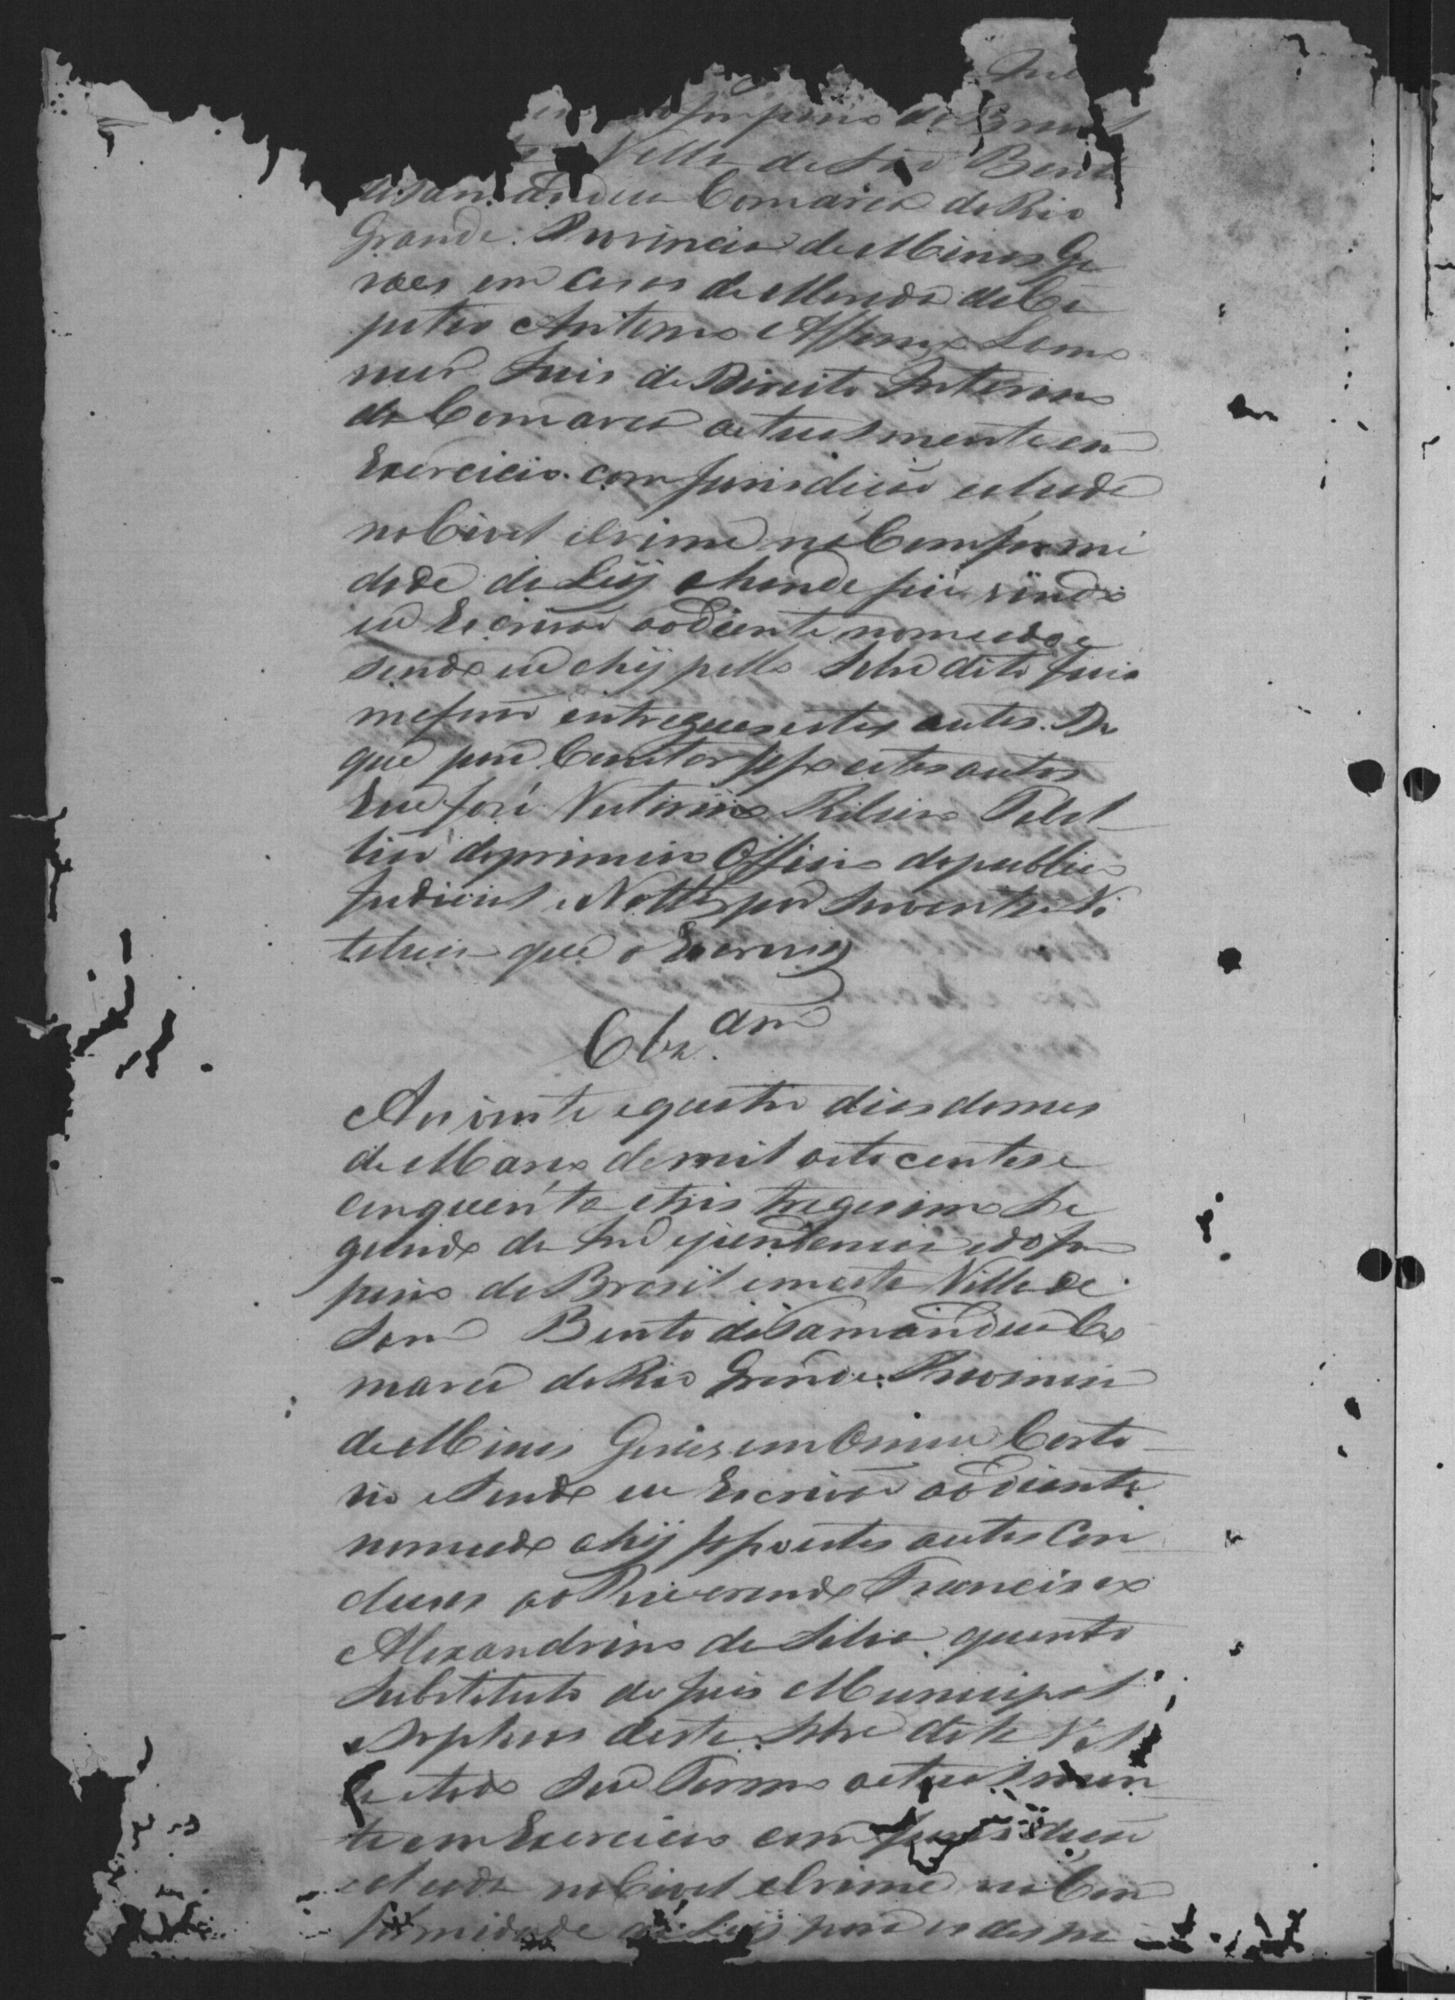 do Imperio do Brasil
Villa de São Bento
de Tamanduá Comarca do Rio
Grande. Provincia de Minas Ge
raes em casas de Morada do Ca
pitão Antonio Affonso Lamo
nier Juis de Direito Interino
da Comarca actualmente em
Exercicio com Jurisdicão
no Civel e Crime na Comformi
dade da Leij e honde fui vindo
eu Escrivão aodiente nomeado e
sendo eu ahij pello sobre dito Juis
me forão entregues estes autos. Do
que para Constar faço estes autos
Eu José Victorino Ribeiro Tabel
lião do primeiro Officio do publico
Judicial e Nottas por serventia Vi
telicia que o Escrevij
Clz.am
Aos vinte e quatro dias do mes
de Março de mil oito centos e
cinquenta e tris trigesimo se
gundo da Independencia e do Im
perio do Brasil em esta Villa de
São Bento de Tamanduá Co
marca do Rio Grande. Provincia
de Minas Geraes em Omeu Carto
rio e sendo eu Escrivão aodiente
nomeado ahij faço estes autos Con
cluzos ao Reverendo Francisco
Alexandrino da Silva quinto
Substituto do Juis Municipal
e Orphãos desta sobre dita Vil
la e todo seu Termo actualmen
te em Exercicio com Jurisdicão
no Civel e Crime na Con
formidade da Leij para os despa